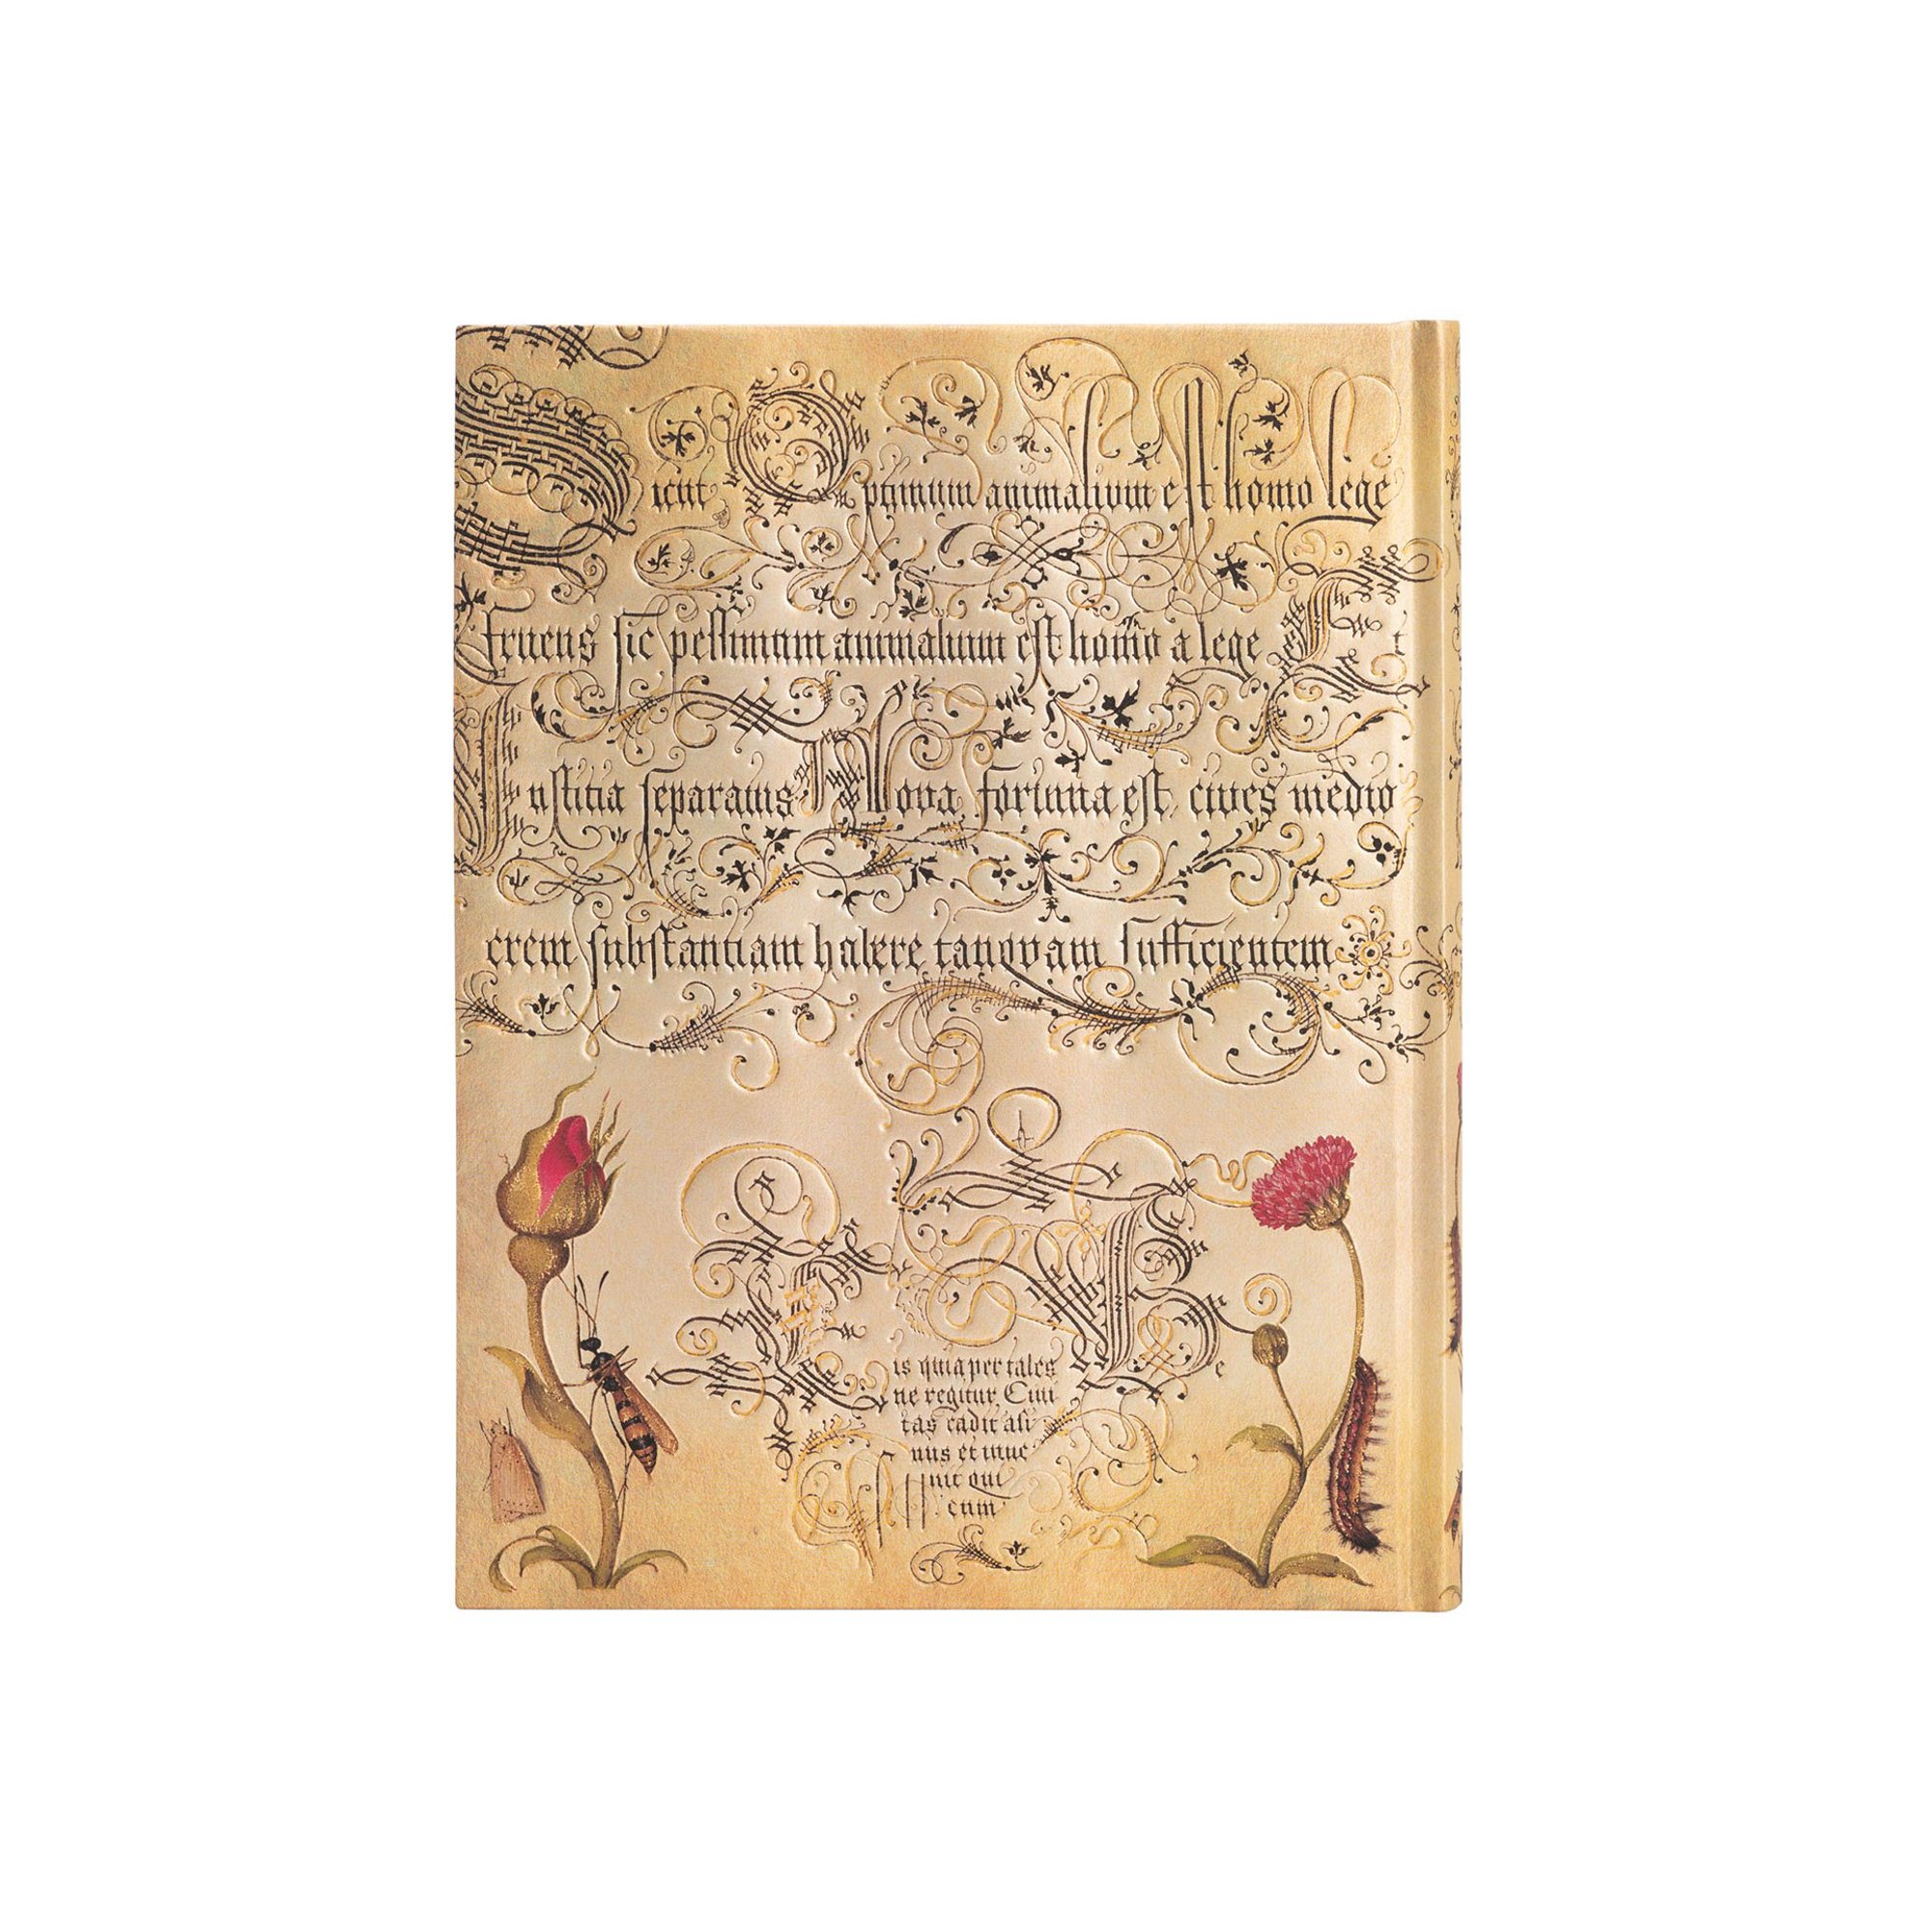 Sicut Optimum animalium est homo lege
fruens sic pessimum animalium est homo a lege Et
Iustitia separatus Nova fortuna est cives medio
crem substantiam habere tanquam sufficientem
is quia per tales Be
ne regitur, Civi
tas cadit asi
nus et inve
nit qui
cum